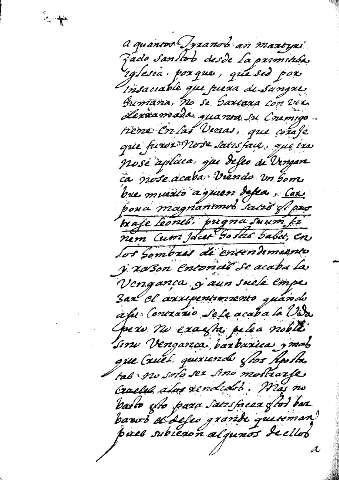 a quantos Tyranos an martyri
zado sanctos desde la primitiba
iglesia. porque, que sed por
insaciable que fuera de sangre
humana, no se hartara con ver
derramada quanta su enemigo
tiene en las Venas, que coraje
que furor no se satisface, que ira
no se aplaca, que deseo de Vengan
ça no se acaba viendo un hom
bre muerto a quien desea, Cor
pora magnanimo satis est pros
trase leoni. pugna suum fi
nem Cum jacet hostis habet, en
los hombres de entendimiento
y razon entonces se acaba la
Vengança y aun suele empe
zar el arrepentimiento quando
a su Contrario se le acaba la Vida
pero no era esta pelea noble
sino Vengança barbarica y mas
que Cruel queriendo estos Aposta
tas no solo ser sino mostrarse
Crueles a los rendidos. Mas no
basto esto para satisfacer estos bar
baros el deseo grande que tenian
pues subieron algunos de ellos
a